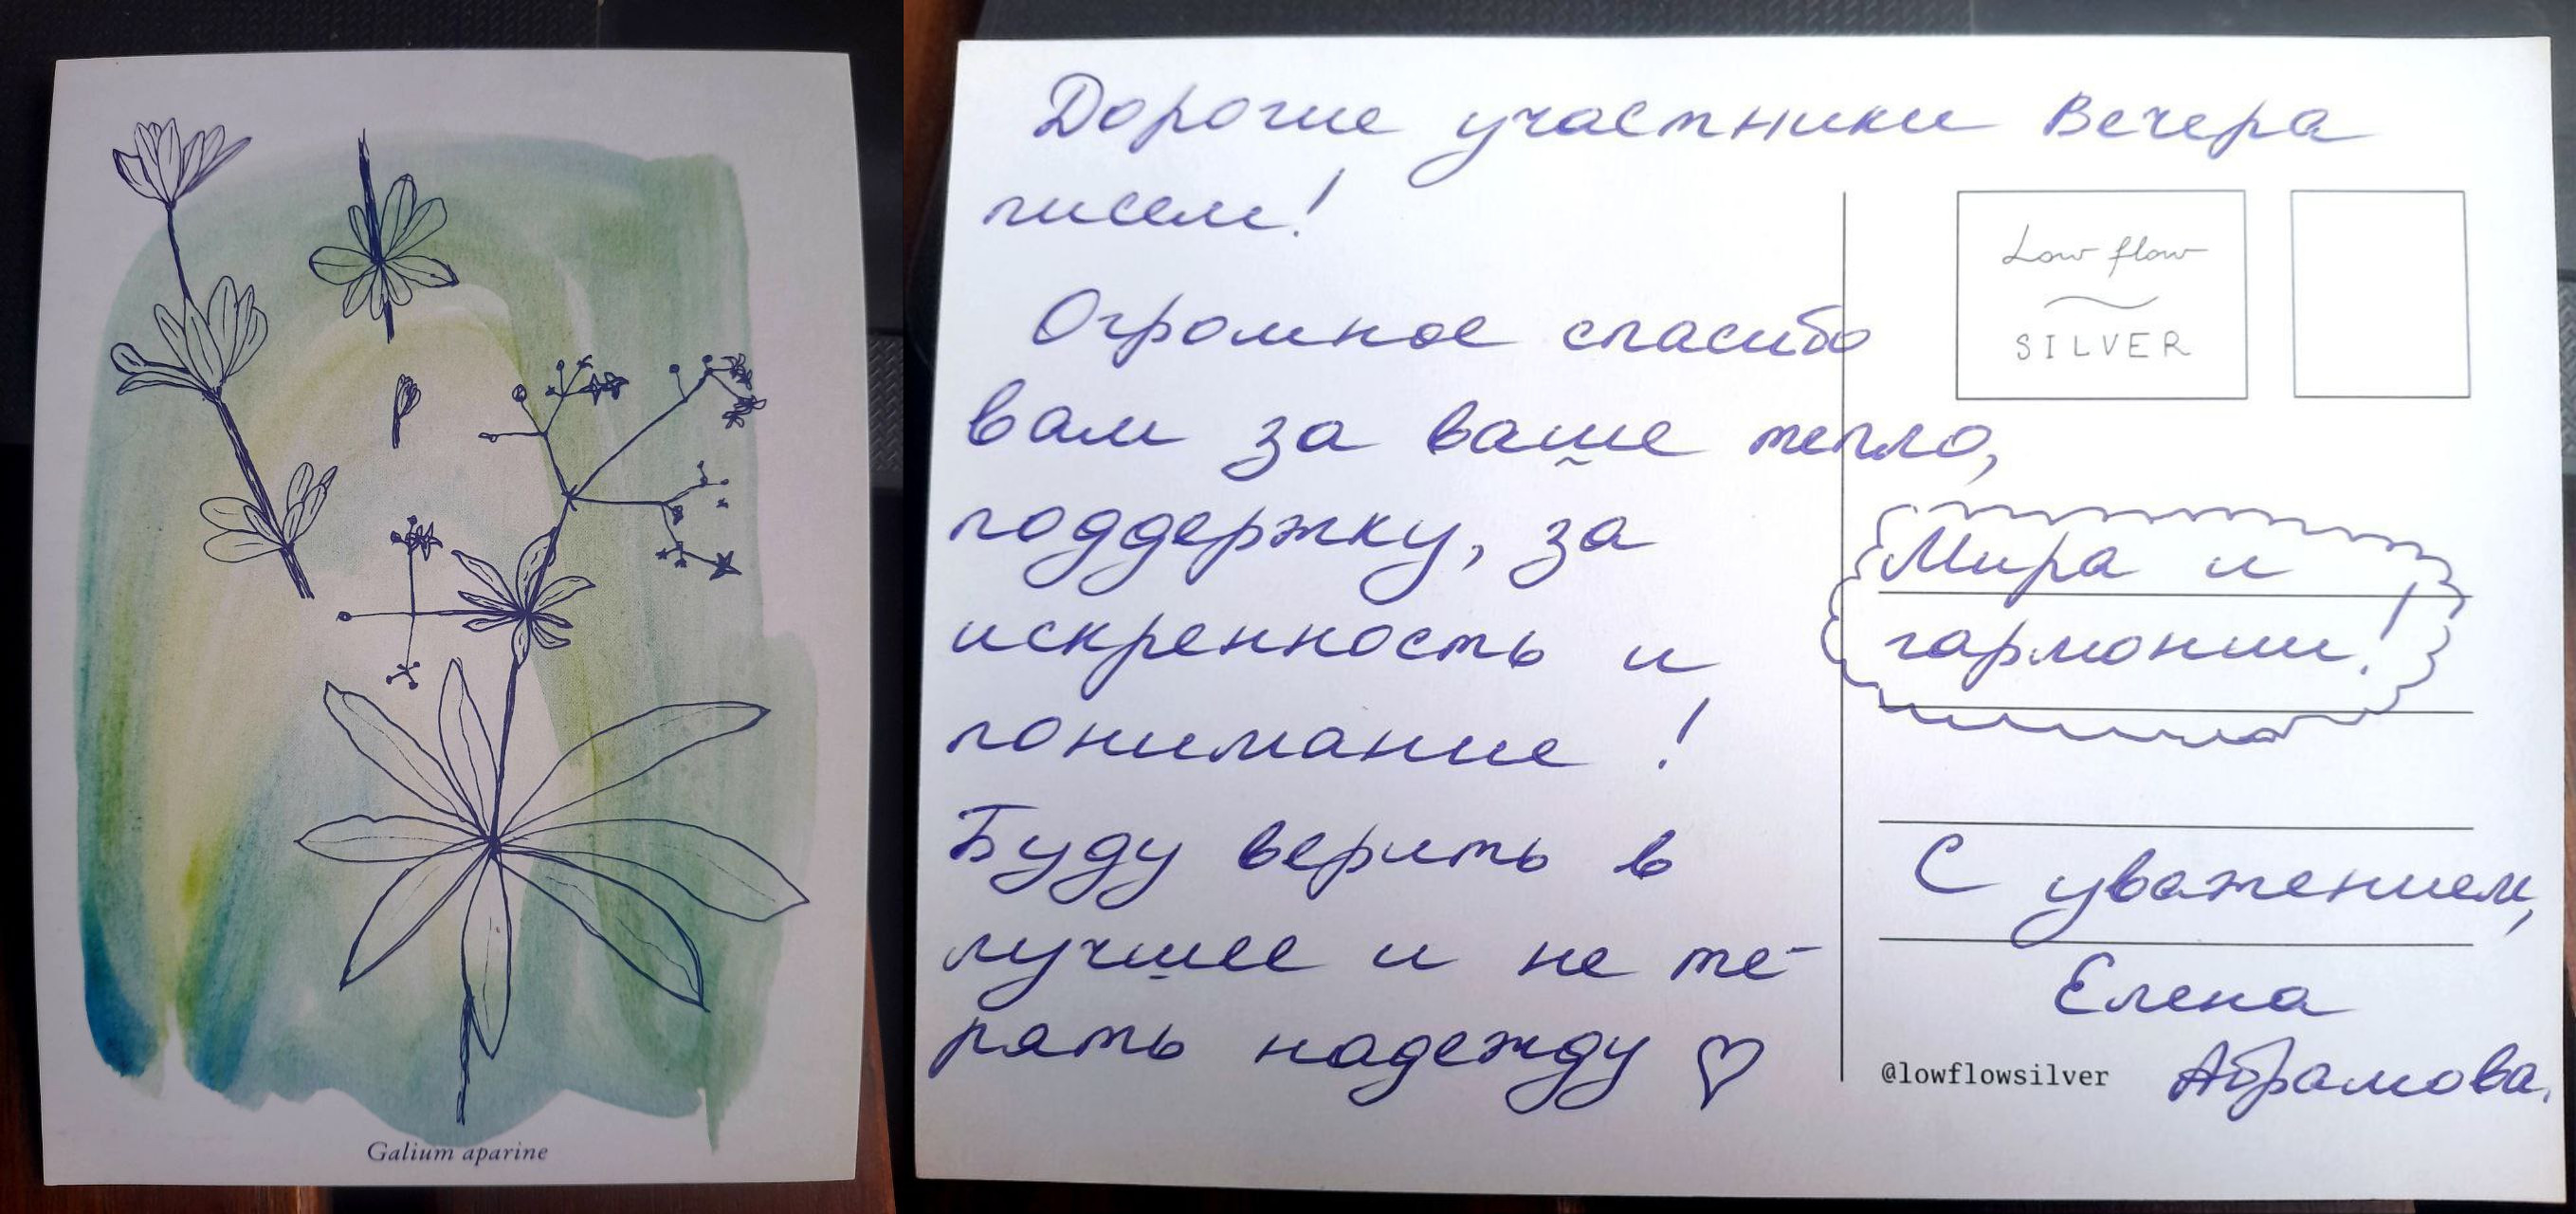 Galium aparine
Дорогие участники Вечера
писем!
Огромное спасибо
вам за ваше тепло,
поддержку, за
искренность и
понимание!
Буду верить в
лучшее и не те-
рять надежду ♡
Low flow
SILVER
Мира и
гармонии!
С уважением,
Елена
Абрамова.
@lowflowsilver